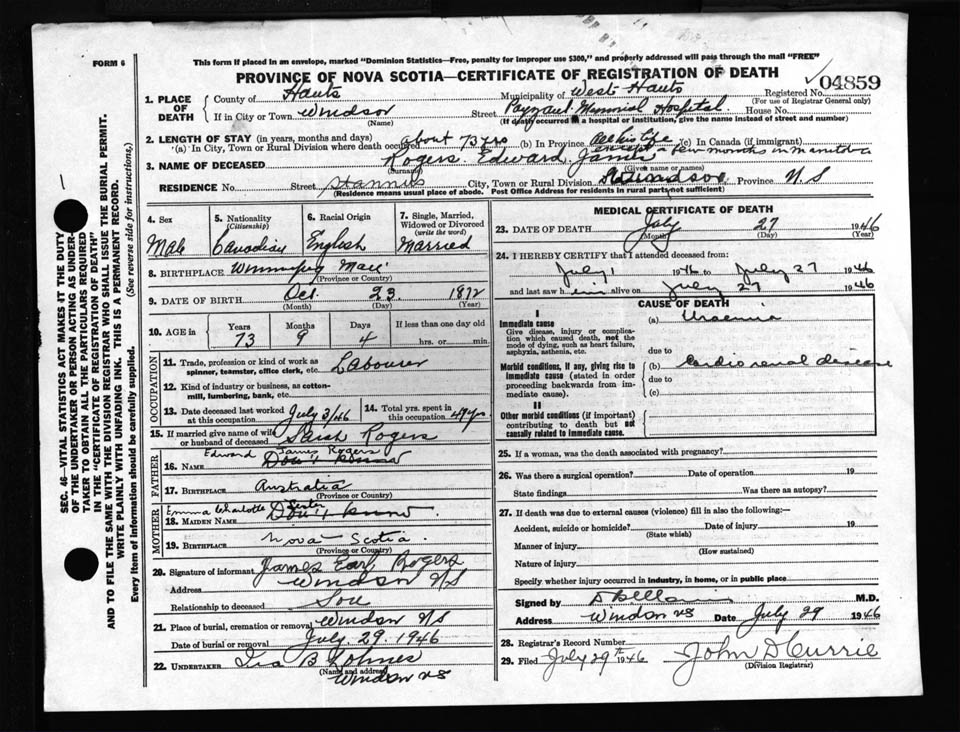 FORM 6
This form if placed in an envelope, marked "Dominion Statistics—Free, penalty for improper use $300," and properly addressed will pass through the mail "FREE"
PROVINCE OF NOVA SCOTIA—CERTIFICATE OF REGISTRATION OF DEATH
04859
1. PLACE OF DEATH
County of Hants Municipality of West Hants Registered No.
(For use of Registrar General only)
If in City or Town Windsor Street Payzant Memorial Hospital House No.
(Name) (If death occurred in a hospital or institution, give the name instead of street and number)
2. LENGTH OF STAY (in years, months and days)
(a) In City, Town or Rural Division where death occurred about 73 yrs (b) In Province All his life (c) In Canada (if immigrant)
except a few months in Manitoba
3. NAME OF DECEASED Rogers Edward James
(Surname) (Given name or names)
RESIDENCE No. Street Stannus City, Town or Rural Division Windsor Province N.S
(Residence means usual place of abode. Post Office Address for residents in rural parts, not sufficient)
4. Sex Male
5. Nationality (Citizenship) Canadian
6. Racial Origin English
7. Single, Married, Widowed or Divorced (write the word) Married
8. BIRTHPLACE Winnipeg Man
(Province or Country)
9. DATE OF BIRTH Oct. 23 1872
(Month) (Day) (Year)
10. AGE in Years 73 Months 9 Days 4 If less than one day old hrs. or min.
OCCUPATION
11. Trade, profession or kind of work as spinner, teamster, office clerk, etc. Labourer
12. Kind of industry or business, as cotton-mill, lumbering, bank, etc.
13. Date deceased last worked at this occupation July 3/46
14. Total yrs. spent in this occupation 47 yrs
15. If married give name of wife or husband of deceased Sarah Rogers
FATHER
Edward James Rogers
16. NAME Don't know
17. BIRTHPLACE Australia
(Province or Country)
MOTHER
Emma Charlotte
18. MAIDEN NAME Don't know
19. BIRTHPLACE Nova Scotia.
(Province or Country)
20. Signature of informant James Earl Rogers
Address Windsor N/S
Relationship to deceased Son
21. Place of burial, cremation or removal Windsor N/S
Date of burial or removal July 29 1946
22. UNDERTAKER Ira B Kohnes
(Name and address)
Windsor NS
MEDICAL CERTIFICATE OF DEATH
23. DATE OF DEATH July 27 1946
(Month) (Day) (Year)
24. I HEREBY CERTIFY that I attended deceased from:
July 1 1946 to July 27 1946
and last saw him alive on July 27 1946
CAUSE OF DEATH
I
Immediate cause
Give disease, injury or complication which caused death, not the mode of dying, such as heart failure, asphyxia, asthenia, etc.
(a) Uraemia
due to
Morbid conditions, if any, giving rise to immediate cause (stated in order proceeding backwards from immediate cause).
(b) Cardio renal disease
due to
(c)
II
Other morbid conditions (if important) contributing to death but not causally related to immediate cause.
25. If a woman, was the death associated with pregnancy?
26. Was there a surgical operation? Date of operation 19
State findings Was there an autopsy?
27. If death was due to external causes (violence) fill in also the following:—
Accident, suicide or homicide? Date of injury 19
(State which)
Manner of injury
(How sustained)
Nature of injury
Specify whether injury occurred in industry, in home, or in public place
Signed by M.D.
Address Windsor NS Date July 29 1946
28. Registrar's Record Number
29. Filed July 29th 1946 John D Currie
(Division Registrar)
SEC. 46—VITAL STATISTICS ACT MAKES IT THE DUTY
OF THE UNDERTAKER OR PERSON ACTING AS UNDER-
TAKER TO OBTAIN ALL THE PARTICULARS REQUIRED
IN THE "CERTIFICATE OF REGISTRATION OF DEATH"
AND TO FILE THE SAME WITH THE DIVISION REGISTRAR WHO SHALL ISSUE THE BURIAL PERMIT.
WRITE PLAINLY WITH UNFADING INK. THIS IS A PERMANENT RECORD.
Every item of information should be carefully supplied. (See reverse side for instructions.)